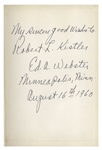 My sincere good wishes to
Robert L. Kistler
Ed. A. Webster
Minneapolis, Minn.
August 16th 1960